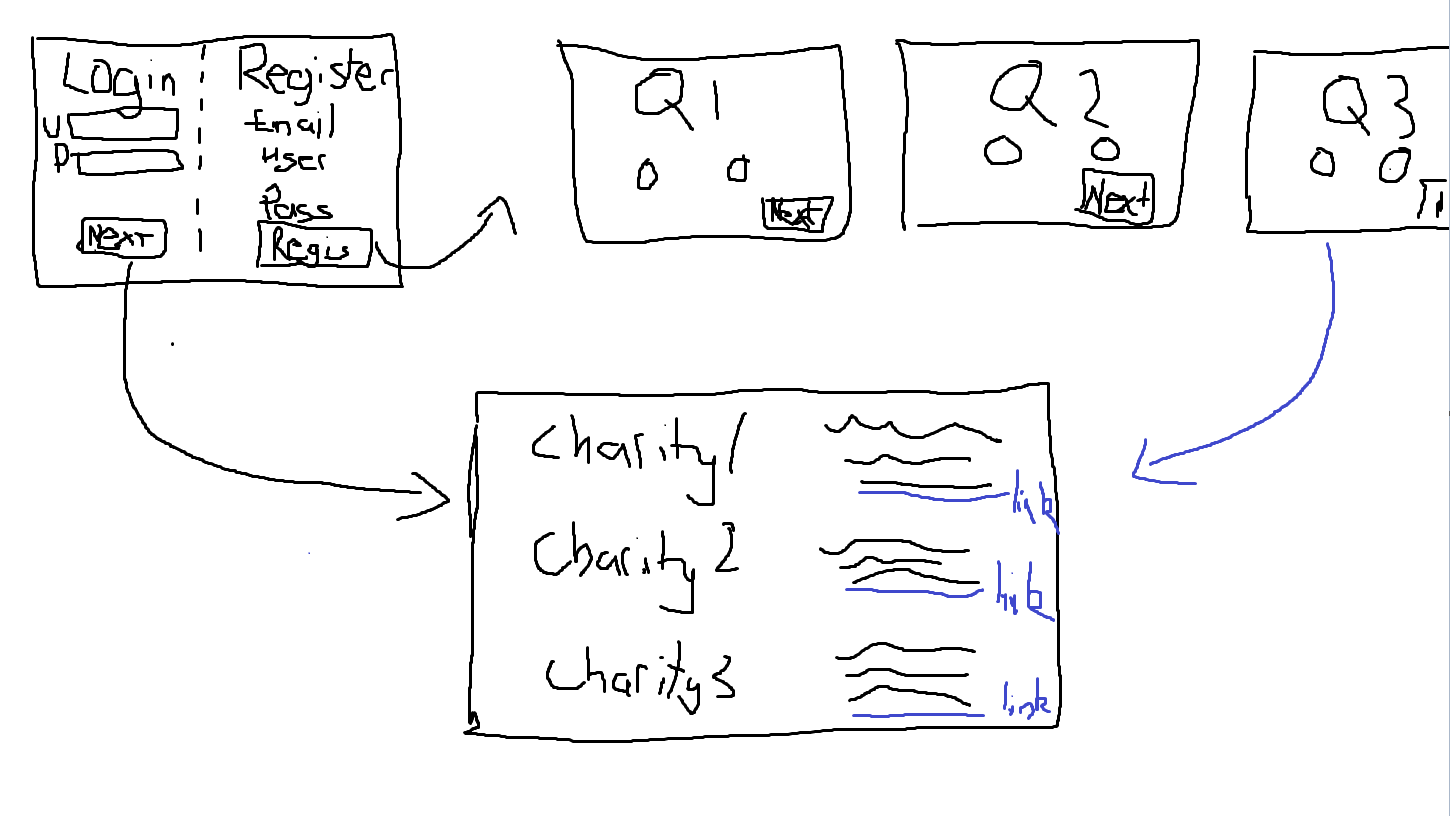 Login
U
P
Next
Register
Email
User
Pass
Regis
Q 1
Next
Q 2
Next
Q 3
Charity 1
link
Charity 2
link
Charity 3
link